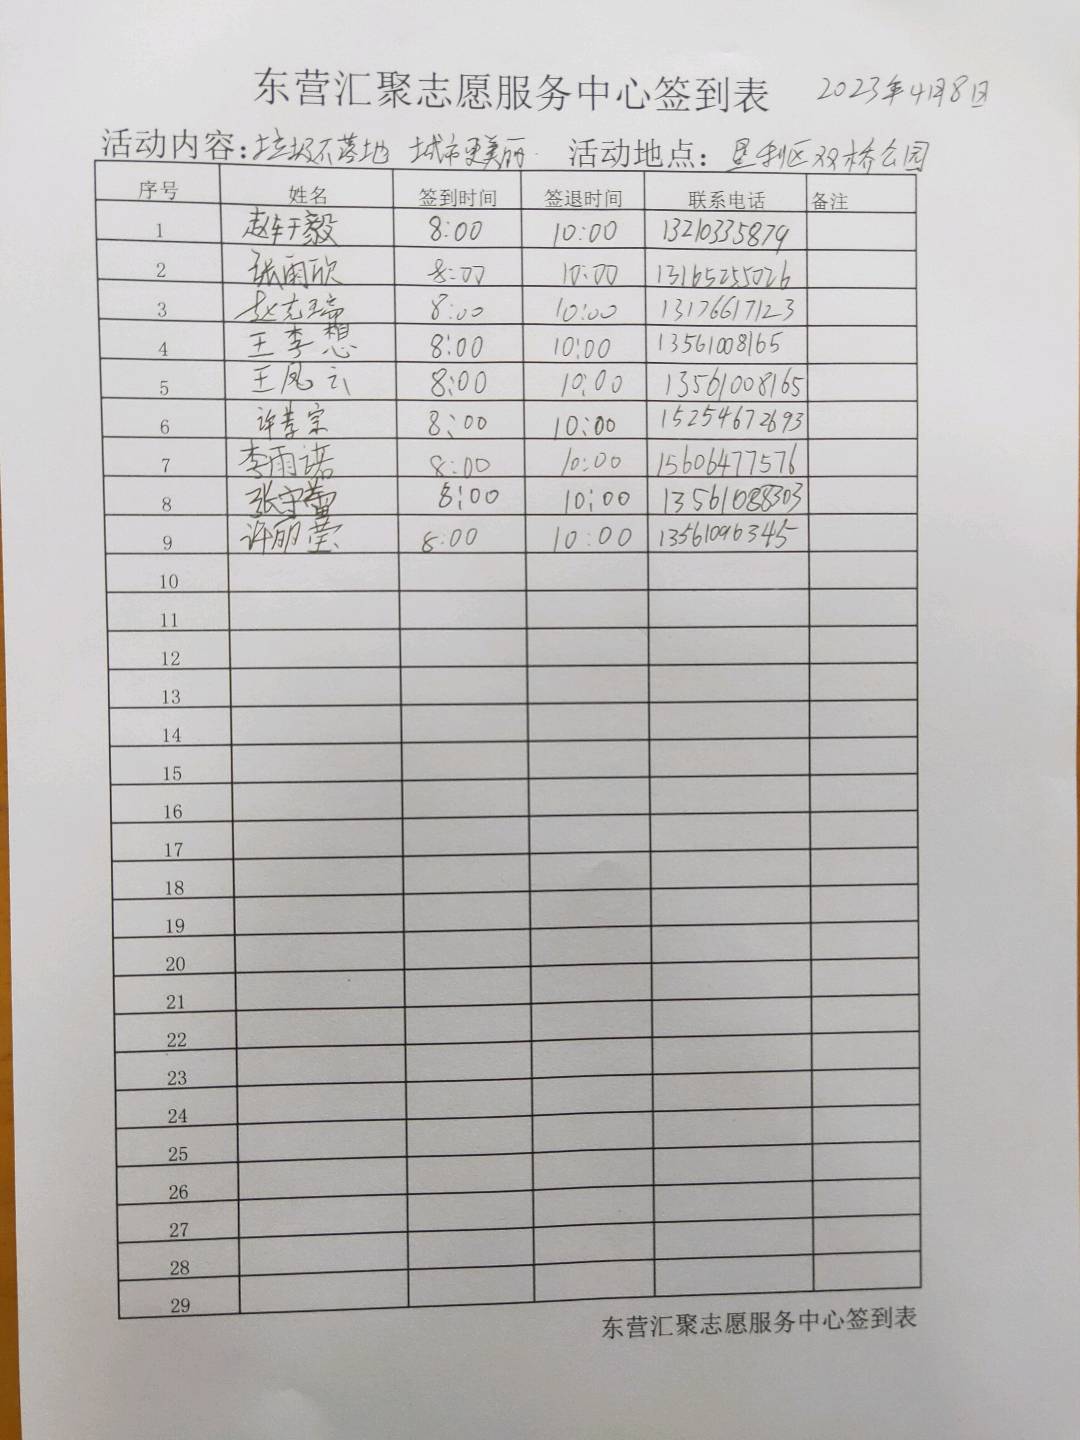 东营汇聚志愿服务中心签到表 2023年4月8日
活动内容:垃圾不落地 城市更美丽 活动地点:垦利区双桥公园
序号 姓名 签到时间 签退时间 联系电话 备注
1 8:00 10:00 13210335879
2 张雨欣 8:00 10:00 13165255026
3 8:00 10:00 13176617123
4 王李想 8:00 10:00 13561008165
5 王凤云 8:00 10:00 13561008165
6 许孝宗 8:00 10:00 15254672693
7 李雨诺 8:00 10:00 15606477576
8 张守蕾 8:00 10:00
9 许丽莹 8:00 10:00 13561096345
10
11
12
13
14
15
16
17
18
19
20
21
22
23
24
25
26
27
28
29
东营汇聚志愿服务中心签到表